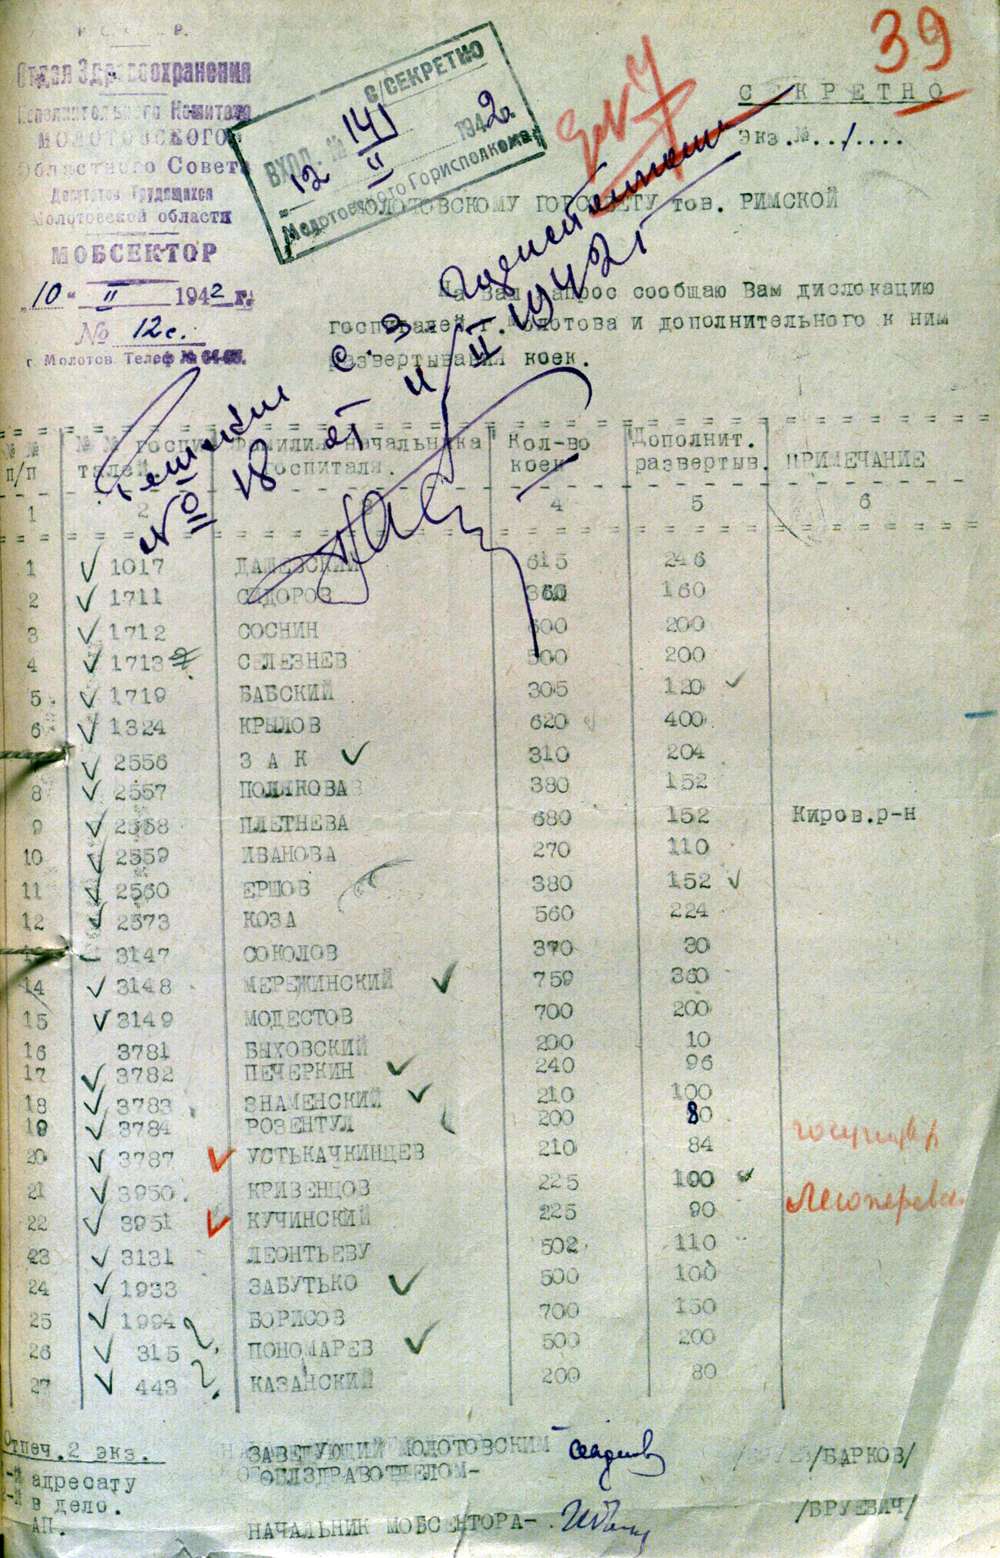 Р. С. Ф. С. Р.
Отдел Здравоохранения
Исполнительного Комитета
МОЛОТОВСКОГО
Областного Совета
Депутатов Трудящихся
Молотовской области
МОБСЕКТОР
„10“ II 1942 г.
№ 12с.
г. Молотов Телеф №
С/СЕКРЕТНО
ВХОД. № 141
12 II 1942.
Молотовского Горисполкома
39
СЕКРЕТНО
Экз.№../....
МОЛОТОВСКОМУ ГОРСОВЕТУ тов. РИМСКОЙ
На Ваш запрос сообщаю Вам дислокацию
госпиталей г. Молотова и дополнительного к ним
развертывания коек.
№ № п/п | № № госпиталей | Фамилия начальника госпиталя. | Кол-во коек | Дополнит. развертыв. | ПРИМЕЧАНИЕ
1 2 4 5 6
1 1017 ДАШЕВСКИЙ 615 246
2 1711 СИДОРОВ 360 160
3 1712 СОСНИН 600 200
4 1713 СЕЛЕЗНЕВ 500 200
5 1719 БАБСКИЙ 305 120
6 1324 КРЫЛОВ 620 400
2556 З А К 310 204
8 2557 ПОЛЯКОВА 380 152
9 2558 ПЛЕТНЕВА 680 152 Киров.р-н
10 2559 ИВАНОВА 270 110
11 2560 ЕРШОВ 380 152
12 2573 КОЗА 560 224
3147 СОКОЛОВ 370 30
14 3148 МЕРЕЖИНСКИЙ 759 360
15 3149 МОДЕСТОВ 700 200
16 3781 БЫХОВСКИЙ 200 10
17 3782 ПЕЧЕРКИН 240 96
18 3783 ЗНАМЕНСКИЙ 210 100
19 3784 РОЗЕНТУЛ 200 80
20 3787 УСТЬКАЧКИНЦЕВ 210 84
21 3950 КРИВЕНЦОВ 225 100
22 3951 КУЧИНСКИЙ 225 90
23 3131 ЛЕОНТЬЕВУ 502 110
24 1933 ЗАБУТЬКО 500 100
25 1994 БОРИСОВ 700 150
26 315 ПОНОМАРЕВ 500 200
27 443 КАЗАНСКИЙ 200 80
Отпеч.2 экз.
адресату
в дело.
АП.
ЗАВЕДУЮЩИЙ МОЛОТОВСКИМ
ОБЛЗДРАВОТДЕЛОМ- /БАРКОВ/
НАЧАЛЬНИК МОБСЕКТОРА- /БРУЕВИЧ/